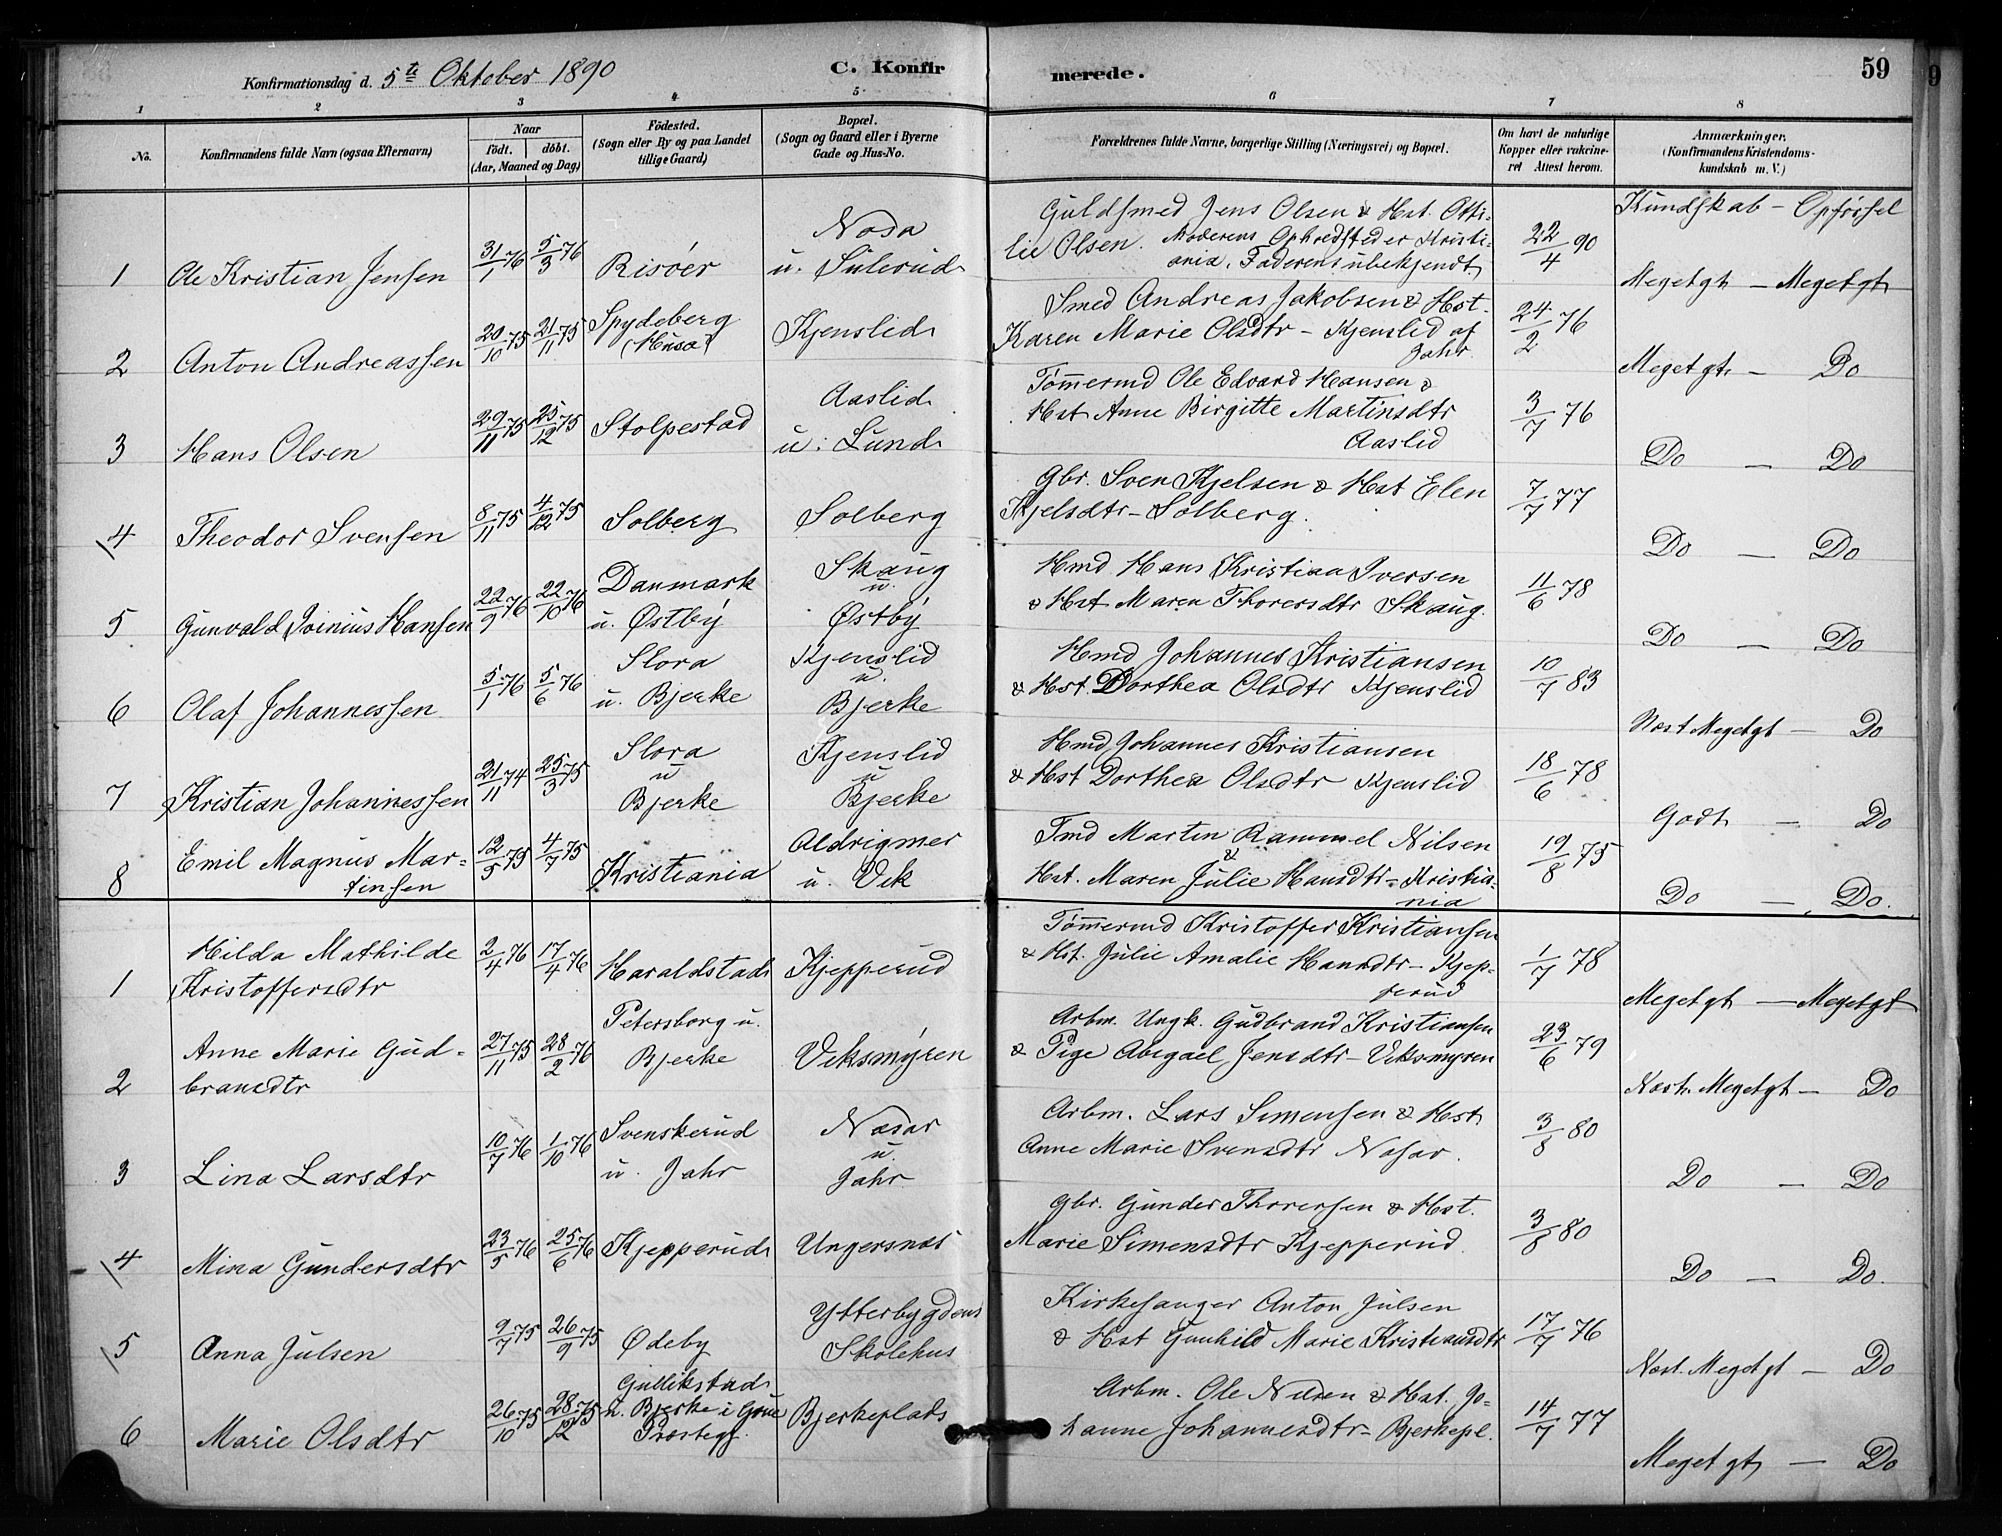 Konfirmationsdag d. 5te Oktober 1890
C. Konfirmerede.
59
1 2 3 4 5 6 7 8
No.
Konfirmandens fulde Navn (ogsaa Efternavn)
Naar
födt. döbt.
(Aar, Maaned og Dag)
Födested.
(Sogn eller By og paa Landet
tillige Gaard)
Bopæl.
(Sogn og Gaard eller i Byerne
Gade og Hus-No.
Forældrenes fulde Navne, borgerlige Stilling (Næringsvei) og Bopæl.
Om havt de naturlige
Kopper eller vakcine-
ret Attest herom.
Anmærkninger.
(Konfirmandens Kristendoms-
kundskab m. V.)
Kundskab - Opförsel
1 Ole Kristian Jensen 31/1 76 5/3 76 Risöer
Nosa
u. Sulerud
Guldsmed Jens Olsen & Hst. Otti-
lie Olsen. Moderens Opholdsted er Kristi-
ania. Faderens ubekjendt
22/4 90
Megetgt - Megetgt
2 Anton Andreassen 20/10 75 21/11 75
Spydeberg
Kjenslid
Smed Andreas Jakobsen & Hst.
Karen Marie Olsdtr - Kjenslid af
Jahr.
24/2 76
Megetgt. - Do
3 Hans Olsen 29/11 75 25/12 75 Stolpestad
Aaslid
u: Lund
Tömermd Ole Edvard Hansen &
Hst Anne Birgitte Martinsdtr
Aaslid
3/7 76
Do - Do
4 Theodor Svensen 8/11 75 4/12 75 Solberg Solberg
Gbr. Sven Kjelsen & Hst Elen
Kjelsdtr - Solberg.
7/7 77
Do - Do
5 Gunvald Ivinius Hansen 22/9 76 22/10 76
Danmark
u. Østby
Skaug
u.
Østby
Hmd Hans Kristian Iversen
& Hst Maren Thorersdtr Skaug.
11/6 78
Do - Do
6 Olaf Johannessen 5/1 76 5/6 76
Slora
u. Bjerke
Kjenslid
u.
Bjerke
Hmd Johannes Kristiansen
& Hst. Dorthea Olsdtr Kjenslid
10/7 83
Næst Megetgt - Do
7 Kristian Johannessen 21/11 74 25/3 75
Slora
u
Bjerke
Kjenslid
u
Bjerke
Hmd Johannes Kristiansen
& Hst Dorthea Olsdtr Kjenslid
18/6 78
Godt - Do
8 Emil Magnus Mar-
tinsen
12/5 75 4/7 75 Kristiania
Aldrigmer
u. Vik
Tmd Martin Rammel Nilsen
&
Hst. Maren Julie Hansdtr - Kristia-
nia
19/8 75
Do - Do.
1 Hilda Mathilde
Kristoffersdtr
2/4 76 17/4 76 Haraldstad Kjepperud
Tömermd Kristoffer Kristiansen
& Hst. Julie Amalie Hansdtr - Kjep-
perud
1/7 78
Megetgt - Megetgt
2 Anne Marie Gud-
bransdtr
27/11 75 28/2 76
Petersborg u.
Bjerke
Viksmyren
Arbm. Ungk. Gudbrand Kristiansen
& Pige Abegael Jensdtr - Viksmyren
23/6 79
Næst. Megetgt - Do
3 Lina Larsdtr 10/7 76 1/10 76
Svenskerud
u. Jahr
Nasar
u.
Jahr
Arbm. Lars Simensen & Hst
Anne Marie Svensdtr Nasar.
3/8 80
Do - Do
4 Mina Gundersdtr 23/5 76 25/6 76 Kjepperud Ungersnæs
Gbr. Gunder Thorersen & Hst.
Marie Simensdtr Kjepperud.
3/8 80
Do - Do.
5 Anna Julsen 9/7 75 26/9 75 Ødeby
Ytterbygdens
Skolehus
Kirkesanger Anton Julsen
& Hst Gunhild Marie Kristiansdtr
17/7 76
Næst. Megetgt - Do
6 Marie Olsdtr 26/10 75 28/12 75
Gullikstad
u. Bjerke i Grue
Præstegj.
Bjerkeplads
Arbm. Ole Nilsen & Hst. Jo-
hanne Johannesdtr - Bjerkepl.
14/7 77
Megetgt - Do